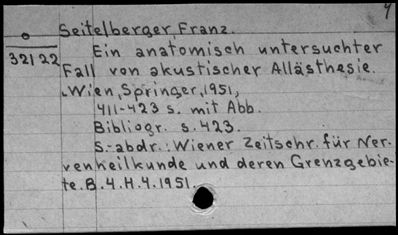 4
o Seitelberger, Franz.
32122 Ein anatomisch untersuchter
Fall von akustischer Allästhesie.
Wien, Springer, 1951,
411-423 s. mit Abb.
Bibliogr. s. 423.
S.-abdr.: Wiener Zeitschr. für Ner-
venheilkunde und deren Grenzgebie-
te. B. 4. H. 4. 1951.